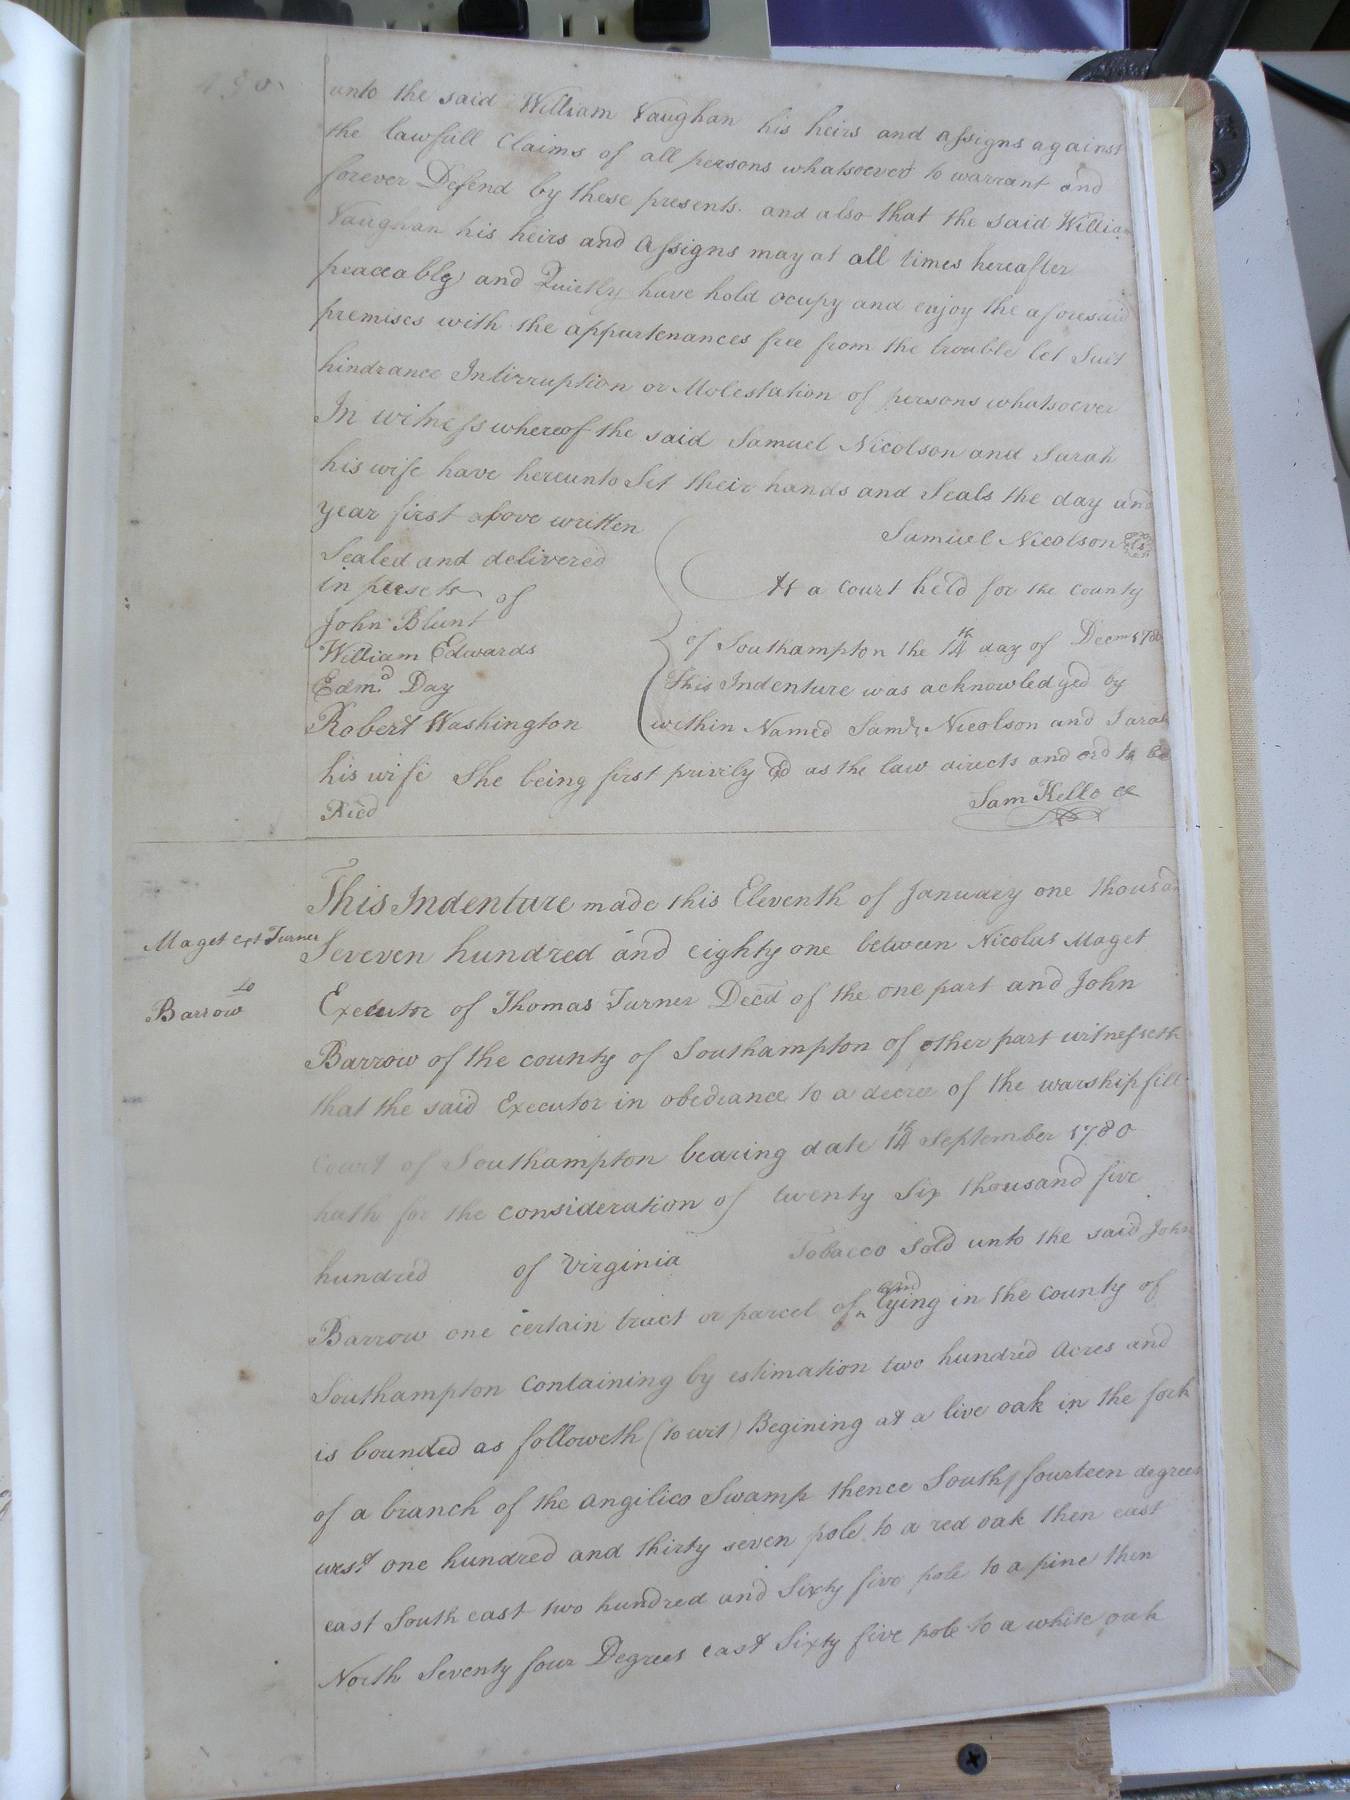 unto the said William Vaughan his heirs and assigns against
the lawfull Claims of all persons whatsoever to warrant and
forever Defend by these presents. and also that the said William
Vaughan his heirs and Assigns may at all times hereafter
peaceably and Quietly have hold ocupy and enjoy the aforesaid
premises with the appurtenances free from the trouble let Suit
hindrance Intirruption or Molestation of persons whatsoever
In witness whereof the said Samuel Nicolson and Sarah
his wife have hereunto Set their hands and Seals the day and
year first above written
Samuel Nicolson
Sealed and delivered
in of
John Blunt
William Edwards
Edmd. Day
Robert Washington
At a Court held for the County
of Southampton the 14th day of Decmr 1780
This Indenture was acknowledged by
within Named Saml. Nicolson and Sarah
his wife She being first privily Ed as the law directs and ord to be
Red
Sam Kello CC
This Indenture made this Eleventh of January one thousand
Maget ext Turner
to
Barrow
Seveven hundred and eighty one between Nicolas Maget
Executor of Thomas Turner Decd of the one part and John
Barrow of the county of Southampton of other part witnesseth
that the said Executor in obediance to a decree of the warshipfill
Court of Southampton bearing date 14th September 1780
hath for the consideration of twenty Six thousand five
hundred of Virginia Tobacco Sold unto the said John
Barrow one certain tract or parcel of ^ land lying in the county of
Southampton Containing by estimation two hundred Acres and
is bounded as followeth (to wit) Begining at a live oak in the fork
of a branch of the angilico Swamp thence South fourteen degrees
west one hundred and thirty seven pole to a red oak then east
east South east two hundred and Sixty five pole to a pine then
North Seventy four Degrees east Sixty five pole to a white oak